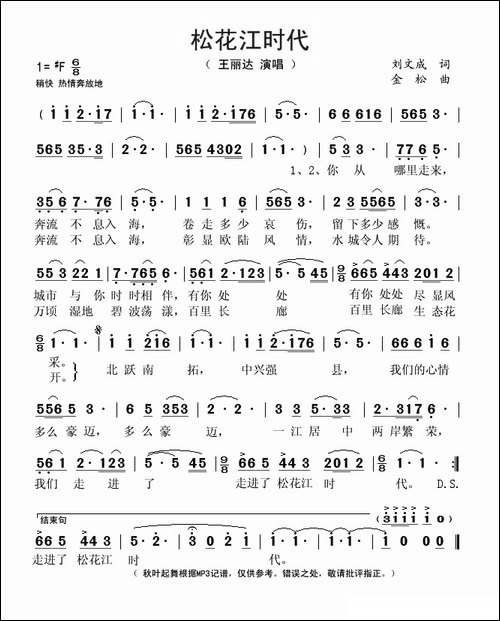 松花江时代
（ 王丽达 演唱 ）
1= #F 6/8
刘文成 词
稍快 热情奔放地
金 松 曲
( i i 2 · i 76 | i · i · | i · i · | 6 6 616 | 565 3 · |
565 35 · | 2 · 2 · | 565 4302 | 1 · 1 · | 1 · 1 0 ) | 5 3 3 · | 77 6 5 · |
1、2、你 从 哪里走来，
356 7 · 76 | 5 · 5 · | 1 1 1 6 | 565 3 · | 2 3 5565 | 3 · 3 · |
奔流 不 息入 海， 卷 走 多少 哀 伤， 留 下多少 感 慨。
奔流 不 息入 海， 彰 显 欧陆 风 情， 水 城令人 期 待。
55 3 22 1 | 7 · 765 6 · | 561 2 · 123 | 5 · 5 45 | 9/8 665 443 201 2 |
城市 与 你 时 时相 伴， 有你 处 处 有你 处处 尽 显风
万顷 湿地 碧 波荡 漾， 百里 长 廊 百里 长廊 生态花
6/8 1 · 1 · | i i 2i6 | i · i · | 2 2 · i76 | 5 · 5 · | 666 i 6 |
采。
开。} 北 跃 南 拓， 中 兴强 县， 我们的心情
5556 3 · | 6 2 353 | 2 · 2 · | 3 33 5 i | 6 · 5 · | 2 · 3 317 6 · |
多么 豪 迈， 多 么 豪 迈， 一 江 居 中 两 岸繁 荣，
561 2 · 123 | 5 · 5 45 | 9/8 66 5 44 3 201 2 | 6/8 1 · 1 · :‖
我们 走 进 了 走进了 松花江 时 代。 D.S.
结束句
( 3iii i i 0 )
66 5 44 3 | 5 · 2 · i76 | 3 0 2 i | i · i · | i · i · | i · i i 0 ‖
走进了 松花江 时 代。
（ 秋叶起舞根据MP3记谱，仅供参考。错误之处，敬请批评指正。）